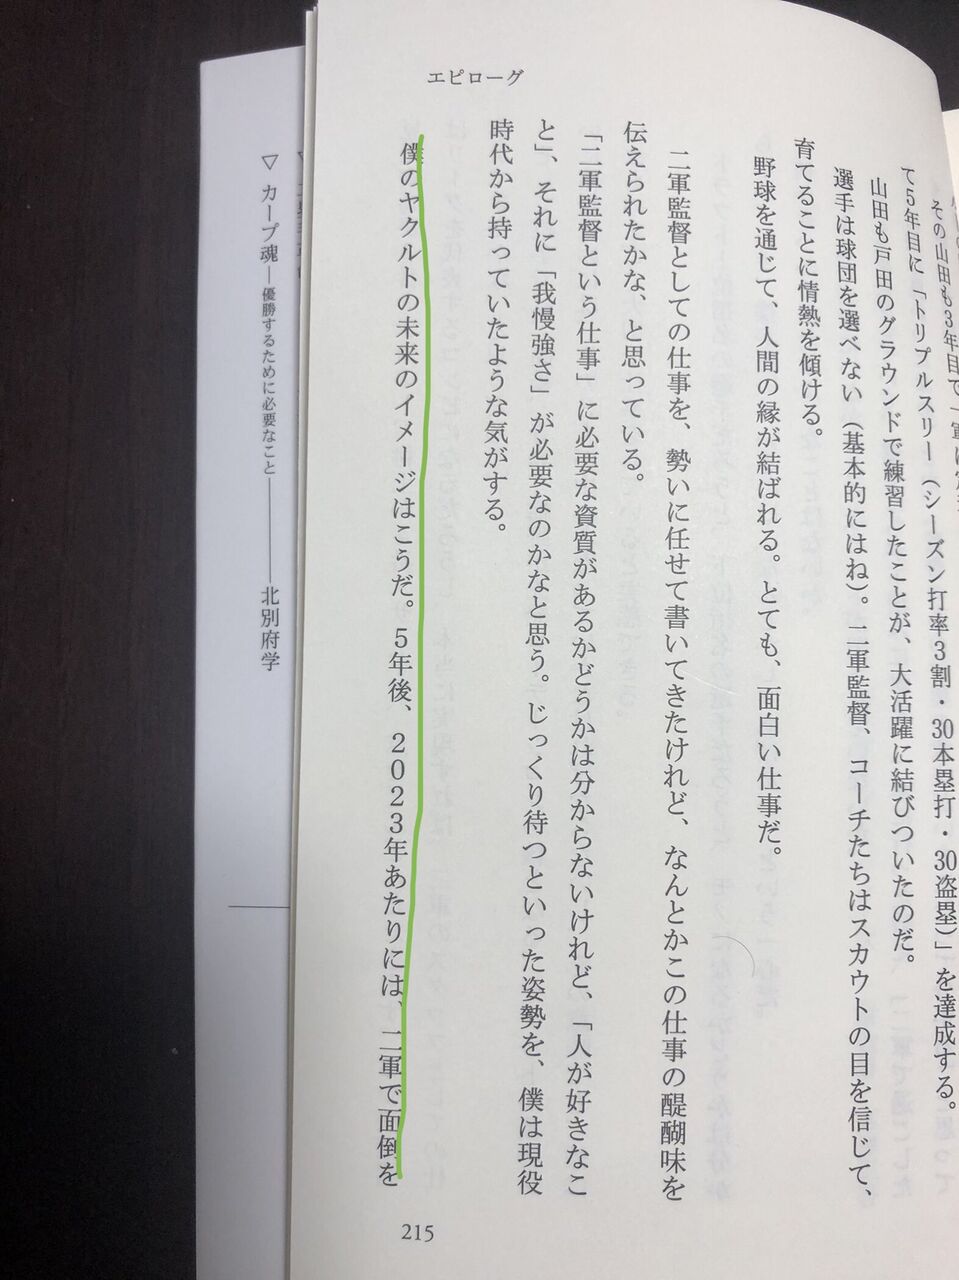 エピローグ
その山田も3年目で一軍に
て5年目に「トリプルスリー（シーズン打率3割・30本塁打・30盗塁）」を達成する。
山田も戸田のグラウンドで練習したことが、大活躍に結びついたのだ。
選手は球団を選べない（基本的にはね）。二軍監督、コーチたちはスカウトの目を信じて、
育てることに情熱を傾ける。
野球を通じて、人間の縁が結ばれる。とても、面白い仕事だ。
二軍監督としての仕事を、勢いに任せて書いてきたけれど、なんとかこの仕事の醍醐味を
伝えられたかな、と思っている。
「二軍監督という仕事」に必要な資質があるかどうかは分からないけれど、「人が好きなこ
と」、それに「我慢強さ」が必要なのかなと思う。じっくり待つといった姿勢を、僕は現役
時代から持っていたような気がする。
僕のヤクルトの未来のイメージはこうだ。5年後、2023年あたりには、二軍で面倒を
215
▽ カープ魂―優勝するために必要なこと――北別府学